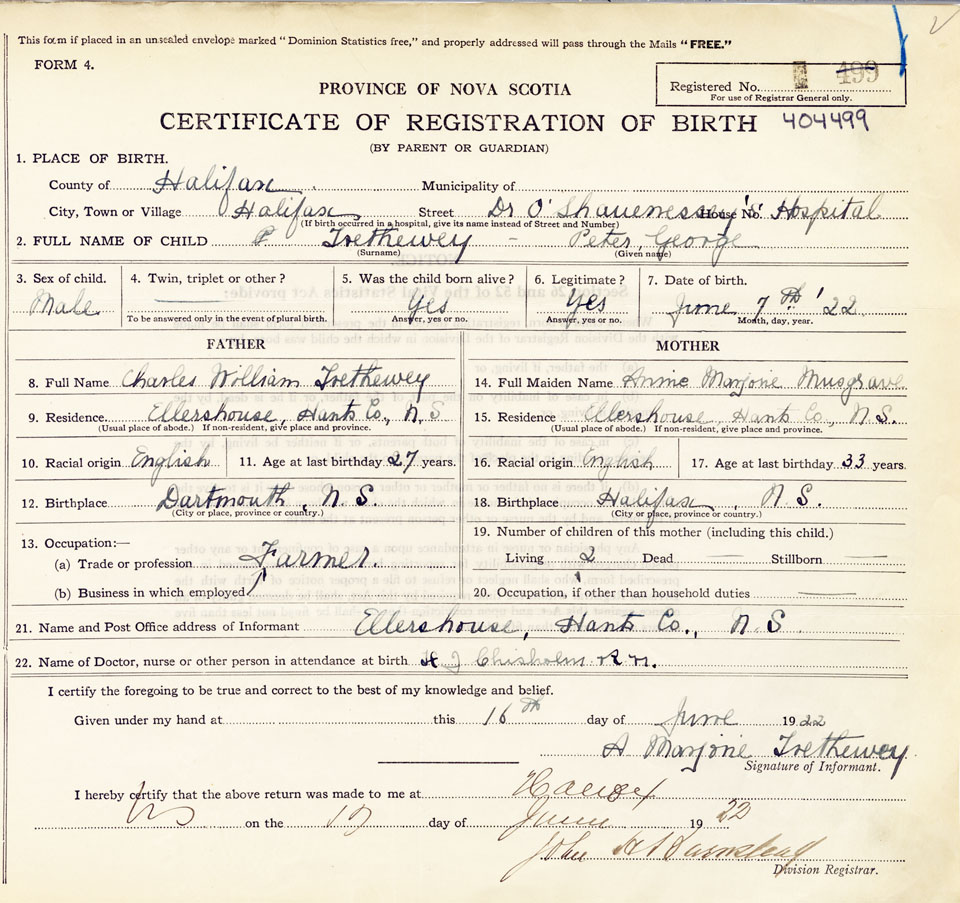 This form if placed in an unsealed envelope marked "Dominion Statistics free," and properly addressed will pass through the Mails "FREE."
FORM 4.
PROVINCE OF NOVA SCOTIA
Registered No. 499
For use of Registrar General only.
CERTIFICATE OF REGISTRATION OF BIRTH 404499
(BY PARENT OR GUARDIAN)
1. PLACE OF BIRTH.
County of Halifax Municipality of
City, Town or Village Halifax Street Dr O'Shauenessey's House No. Hospital
(If birth occurred in a hospital, give its name instead of Street and Number)
2. FULL NAME OF CHILD P Trethewey - Peter, George
(Surname) (Given name)
3. Sex of child. 4. Twin, triplet or other? 5. Was the child born alive? 6. Legitimate? 7. Date of birth.
Male Yes Yes June 7th '22
To be answered only in the event of plural birth. Answer, yes or no. Answer, yes or no. Month, day, year.
FATHER MOTHER
8. Full Name Charles William Trethewey 14. Full Maiden Name Annie Marjorie Musgrave
9. Residence Ellershouse, Hants Co., N.S 15. Residence Ellershouse, Hants Co., N.S.
(Usual place of abode.) If non-resident, give place and province. (Usual place of abode.) If non-resident, give place and province.
10. Racial origin English 11. Age at last birthday 27 years. 16. Racial origin English 17. Age at last birthday 33 years.
12. Birthplace Dartmouth, N.S. 18. Birthplace Halifax, N.S.
(City or place, province or country.) (City or place, province or country.)
13. Occupation:— 19. Number of children of this mother (including this child.)
(a) Trade or profession Farmer. Living 2 Dead — Stillborn —
(b) Business in which employed 20. Occupation, if other than household duties —
21. Name and Post Office address of Informant Ellershouse, Hants Co., N.S
22. Name of Doctor, nurse or other person in attendance at birth H J Chisholm R.N.
I certify the foregoing to be true and correct to the best of my knowledge and belief.
Given under my hand at this 16th day of June 1922
A Marjorie Trethewey
Signature of Informant.
I hereby certify that the above return was made to me at
NS on the 17 day of June 1922
John
Division Registrar.